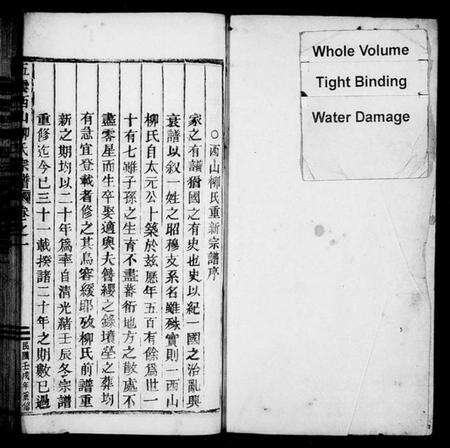 Whole Volume
Tight Binding
Water Damage
○西山柳氏重新宗譜序
家之有譜猶國之有史也史以紀一國之治亂興
衰譜以叙一姓之昭穆支系名雖殊實則一西山
柳氏自太元公卜築於兹歷年五百有餘爲世一
十有七雖子孫之生育不盡蕃衍地方之散處不
盡零星而生卒娶適輿夫簪纓之錄墳塋之葬均
有急宜登載者修之其烏容緩耶攷柳氏前譜重
新之期均以二十年爲率自清光緒壬辰冬宗譜
重修迄今已三十一載揆諸二十年之期數已過
五雲西山柳氏宗譜
卷之一
民國壬戌年重修